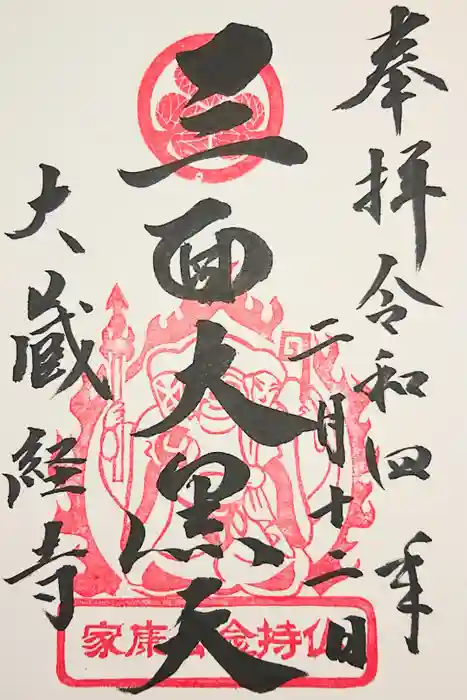 奉拝 令和四年
二月十二日
三面大黒天
大蔵経寺